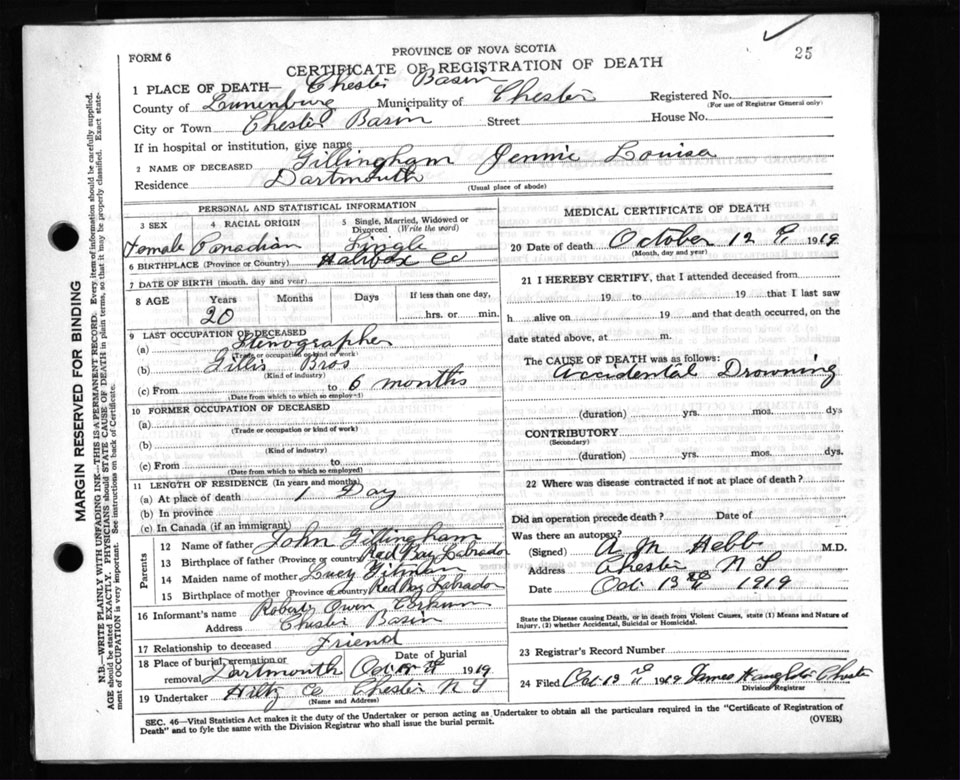 25
FORM 6
PROVINCE OF NOVA SCOTIA
CERTIFICATE OF REGISTRATION OF DEATH
1 PLACE OF DEATH— Chester Basin
County of Lunenburg Municipality of Chester Registered No.
(For use of Registrar General only)
City or Town Chester Basin Street House No.
If in hospital or institution, give name
2 NAME OF DECEASED Gillingham Jennie Louisa
Residence Dartmouth
(Usual place of abode)
PERSONAL AND STATISTICAL INFORMATION
3 SEX 4 RACIAL ORIGIN 5 Single, Married, Widowed or Divorced (Write the word)
Female Canadian Single
6 BIRTHPLACE (Province or Country) Halifax Co
7 DATE OF BIRTH (month, day and year)
8 AGE Years Months Days If less than one day,
20 hrs. or min.
9 LAST OCCUPATION OF DECEASED
(a) Stenographer
(Trade or occupation or kind of work)
(b) Gillis Bros
(Kind of industry)
(c) From to 6 months
(Date from which to which so employed)
10 FORMER OCCUPATION OF DECEASED
(a)
(Trade or occupation or kind of work)
(b)
(Kind of industry)
(c) From to
(Date from which to which so employed)
11 LENGTH OF RESIDENCE (In years and months)
(a) At place of death 1 Day
(b) In province
(c) In Canada (if an immigrant)
Parents
12 Name of father John Gillingham
13 Birthplace of father (Province or country) Red Bay Labrador
14 Maiden name of mother Lucy
15 Birthplace of mother (Province or country) Red Bay Labrador
16 Informant's name Robert Owen Corkum
Address Chester Basin
17 Relationship to deceased Friend
18 Place of burial, cremation or removal Dartmouth Date of burial Oct 1919
19 Undertaker Hiltz Co Chester N S
(Name and Address)
MEDICAL CERTIFICATE OF DEATH
20 Date of death October 12 1919
(Month, day and year)
21 I HEREBY CERTIFY, that I attended deceased from
19 to 19 that I last saw
h alive on 19 and that death occurred, on the
date stated above, at m.
The CAUSE OF DEATH was as follows:
Accidental Drowning
(duration) yrs. mos. dys
CONTRIBUTORY
(Secondary)
(duration) yrs. mos. dys.
22 Where was disease contracted if not at place of death?
Did an operation precede death? Date of
Was there an autopsy?
(Signed) A M Hebb M.D.
Address Chester N S
Date Oct 13th 1919
State the Disease causing Death, or in death from Violent Causes, state (1) Means and Nature of
Injury, (2) whether Accidental, Suicidal or Homicidal.
23 Registrar's Record Number
24 Filed Oct 1919 James Chester
Division Registrar
SEC. 46—Vital Statistics Act makes it the duty of the Undertaker or person acting as Undertaker to obtain all the particulars required in the "Certificate of Registration of
Death" and to fyle the same with the Division Registrar who shall issue the burial permit.
(OVER)
MARGIN RESERVED FOR BINDING
N.B.—WRITE PLAINLY WITH UNFADING INK—THIS IS A PERMANENT RECORD. Every item of information should be carefully supplied.
AGE should be stated EXACTLY. PHYSICIANS should STATE CAUSE OF DEATH in plain terms, so that it may be properly classified. Exact state-
ment of OCCUPATION is very important. See instructions on back of Certificate.